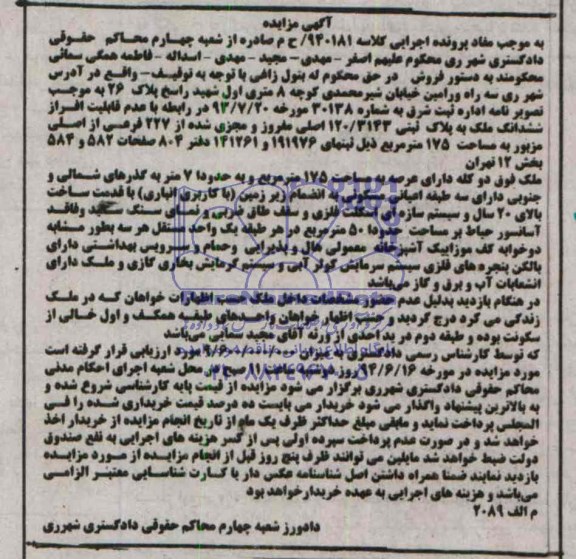 آگهی مزایده
به موجب مفاد پرونده اجرایی کلاسه ۹۴۰۱۸۱/ ح م صادره از شعبه چهارم محاکم حقوقی
دادگستری شهر ری محکوم علیهم اصغر - مهدی - مجید - مهدی - اسداله - فاطمه همگی سمائی
محکومند به دستور فروش در حق محکوم له بتول زاقی با توجه به توقیف - واقع در آدرس
شهر ری سه راه ورامین خیابان شیرمحمدی کوچه ۸ متری اول شهید راسخ پلاک ۲۶ به موجب
تصویر نامه اداره ثبت شرق به شماره ۳۰۱۳۸ مورخه ۹۳/۷/۲۰ در رابطه با عدم قابلیت افراز
ششدانگ ملک به پلاک ثبتی ۱۲۰/۳۱۴۳ اصلی مفروز و مجزی شده از ۲۲۷ فرعی از اصلی
مزبور به مساحت ۱۷۵ مترمربع ذیل ثبتهای ۱۹۱۹۷۶ و ۱۴۱۲۶۱ دفتر ۸۰۴ صفحات ۵۸۲ و ۵۸۴
بخش ۱۲ تهران
ملک فوق دو کله دارای عرصه به مساحت ۱۷۵ مترمربع و به حدودا ۷ متر به گذرهای شمالی و
جنوبی دارای سه طبقه اعیانی مسکونی به انضمام زیر زمین (با کاربری انباری) با قدمت ساخت
بالای ۲۰ سال و سیستم سازه‌ای اسکلت فلزی و سقف طاق ضربی و نمای سنگ سفید وفاقد
آسانسور حیاط بر مساحت حدودا ۵۰ مترمربع در هر طبقه یک واحد مستقل هر سه بطور مشابه
دوخوابه کف موزاییک آشپزخانه معمولی هال و پذیرایی وحمام و سرویس بهداشتی دارای
بالکن پنجره های فلزی سیستم سرمایش کولر آبی و سیستم گرمایش بخاری گازی و ملک دارای
انشعابات آب و برق و گاز می‌باشد
در هنگام بازدید بدلیل عدم حضور مشخصات داخل ملک حسب اظهارات خواهان که در ملک
زندگی می کرد درج گردید و حسب اظهار خواهان واحدهای طبقه همکف و اول خالی از
سکونت بوده و طبقه دوم در ید احدی از ورثه آقای مجید سمایی می‌باشد
که توسط کارشناس رسمی دادگستری به میزان مورد ارزیابی قرار گرفته است
مورد مزایده در مورخه ۹۴/۶/۱۶ روز ساعت صبح در محل شعبه اجرای احکام مدنی
محاکم حقوقی دادگستری شهرری برگزار می شود مزایده از قیمت پایه کارشناسی شروع شده و
به بالاترین پیشنهاد واگذار می شود خریدار می بایست ده درصد قیمت خریداری شده را فی
المجلس پرداخت نماید و مابقی مبلغ حداکثر ظرف یک ماه از تاریخ انجام مزایده از خریدار اخذ
خواهد شد و در صورت عدم پرداخت سپرده اولی پس از کسر هزینه های اجرایی به نفع صندوق
دولت ضبط خواهد شد مایلین می توانند ظرف پنج روز قبل از انجام مزایده از مورد مزایده
بازدید نمایند ضمنا همراه داشتن اصل شناسنامه عکس دار یا کارت شناسایی معتبر الزامی
می‌باشد و هزینه های اجرایی به عهده خریدارخواهد بود
م الف ۲۰۸۹
دادورز شعبه چهارم محاکم حقوقی دادگستری شهرری